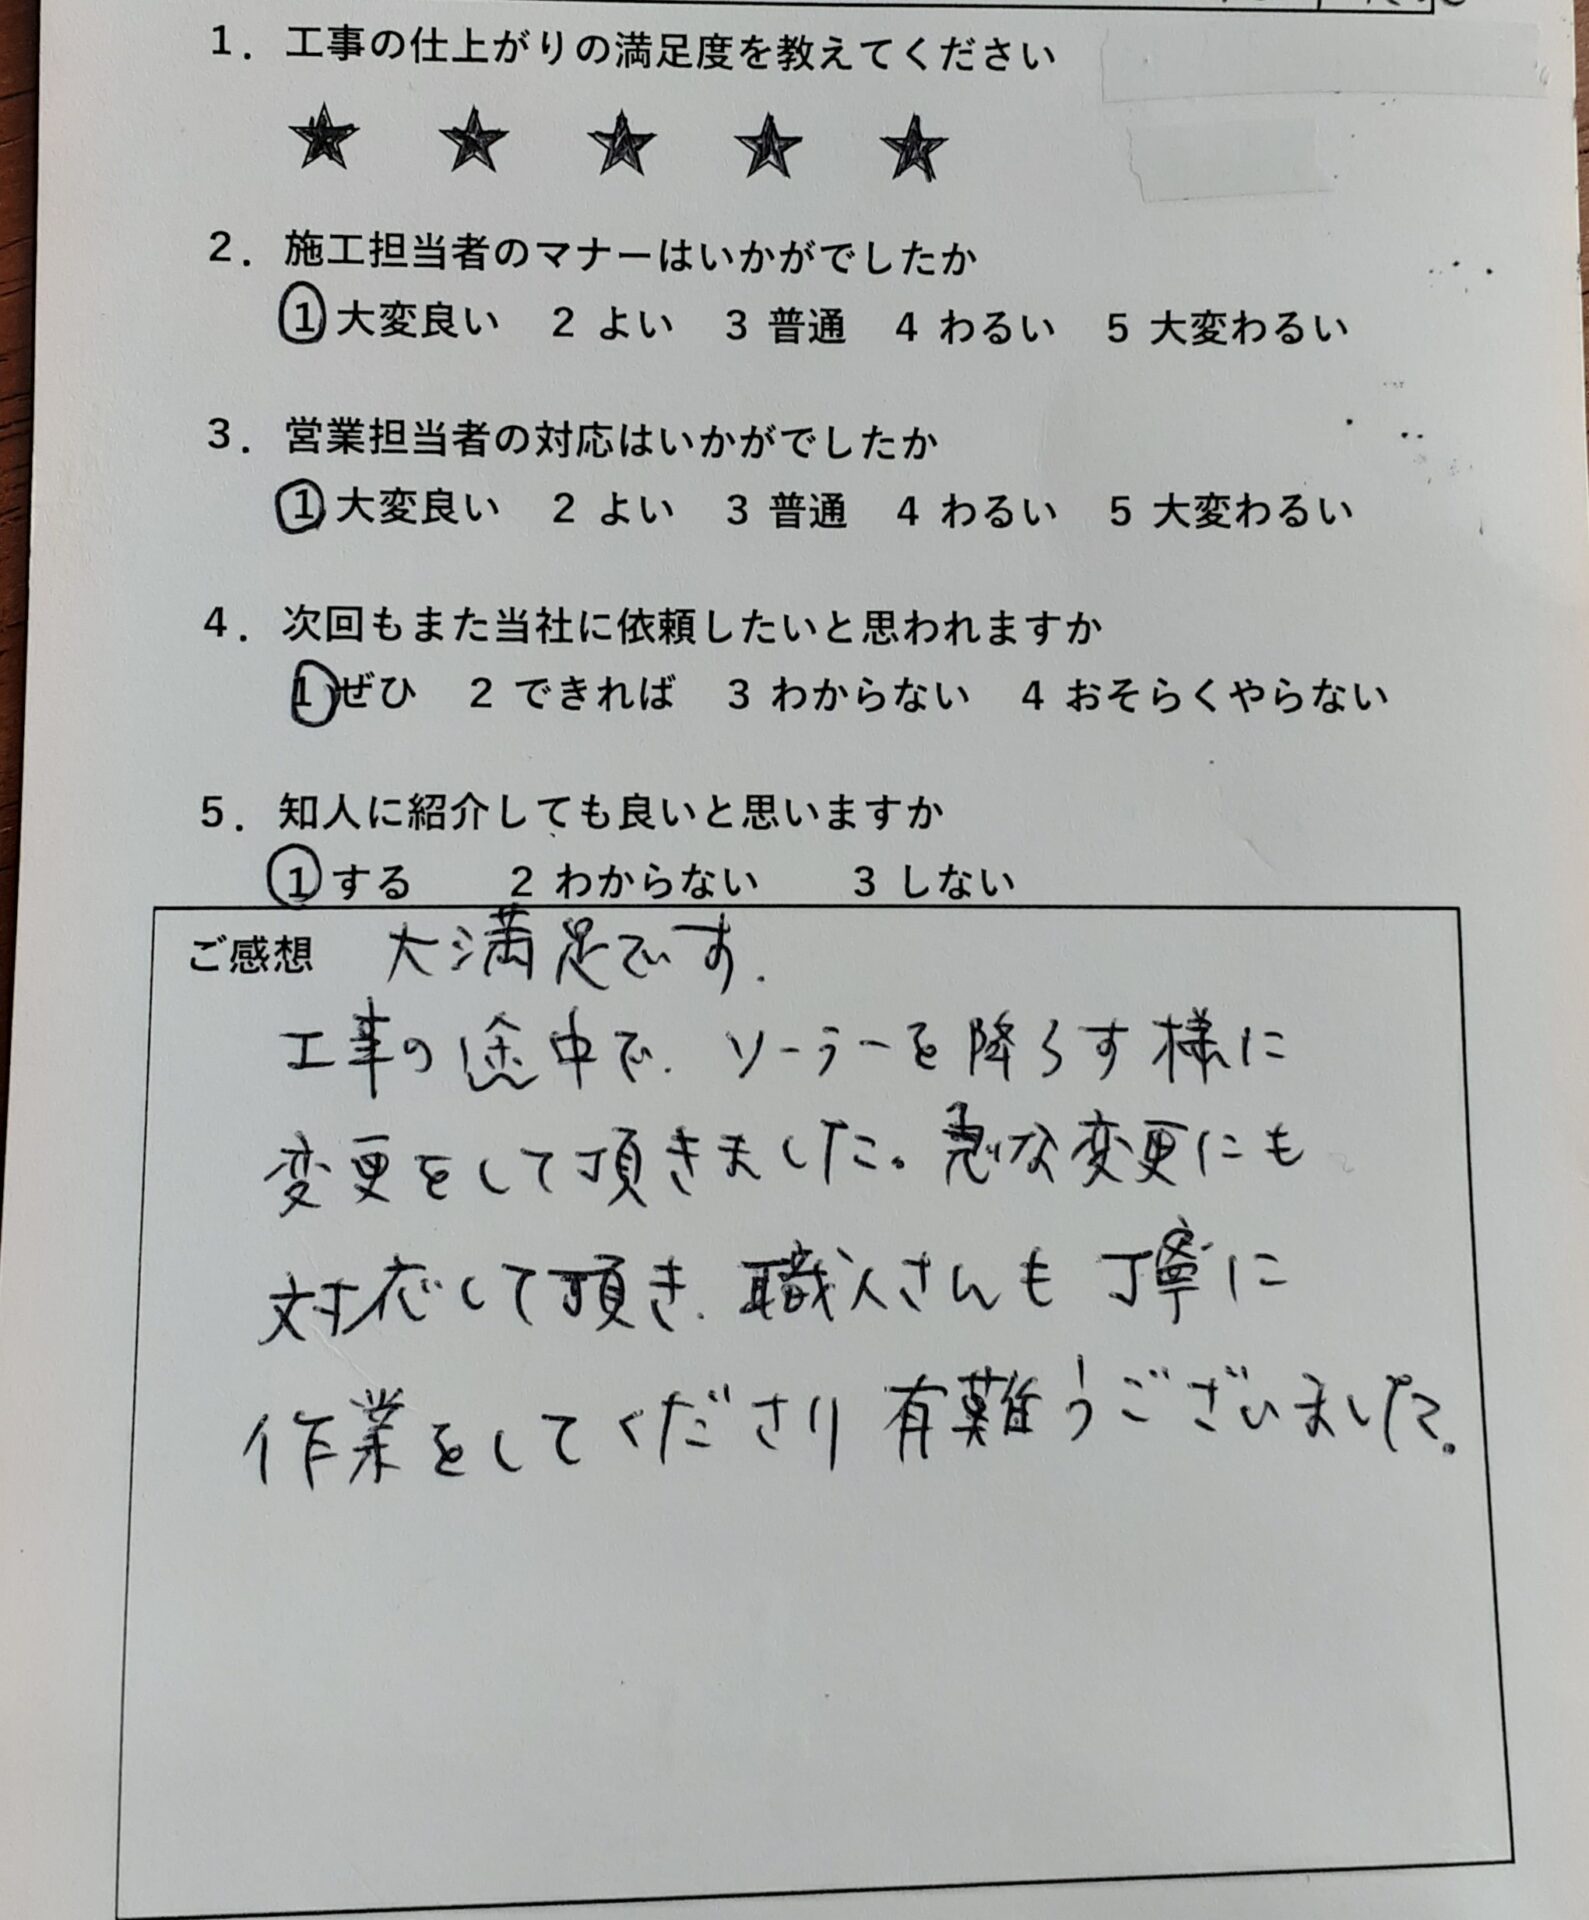 1. 工事の仕上がりの満足度を教えてください
★ ★ ★ ★ ★
2. 施工担当者のマナーはいかがでしたか
1 大変良い 2 よい 3 普通 4 わるい 5 大変わるい
3. 営業担当者の対応はいかがでしたか
1 大変良い 2 よい 3 普通 4 わるい 5 大変わるい
4. 次回もまた当社に依頼したいと思われますか
1 ぜひ 2 できれば 3 わからない 4 おそらくやらない
5. 知人に紹介しても良いと思いますか
1 する 2 わからない 3 しない
ご感想 大満足です.
工事の途中で. ソーラーを降ろす様に
変更をして頂きました。急な変更にも
対応して頂き. 職人さんも丁寧に
作業をしてくださり有難うございました。